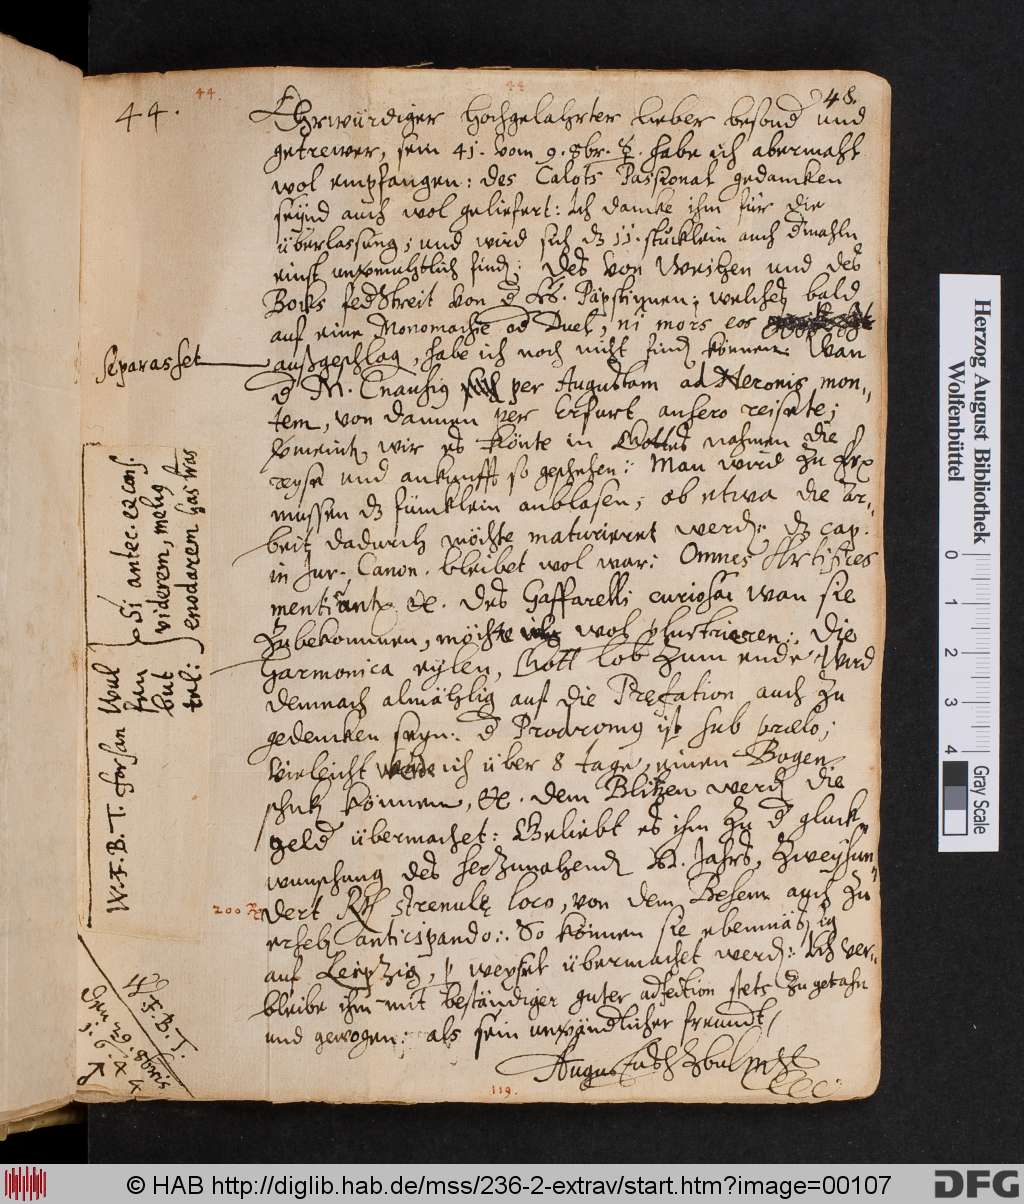 44.
44.
44
48.
Ehrwürdiger Hochgelahrter lieber besond und
getrewer, sein 41. vom 9. 8br. habe ich abermahl
wol empfangen: des Calots Passional gedancken
seynd auch wol geliefert: Ich dancke ihm für die
überlassung; und wird sich dz 11. stücklein auch dmahln
einst find: Des von Weitzen und des
Bocks fedstreit von d Päpstinnen; welches bald
auf eine Monomachie od Duel, ni mors eos
separasset
außgeschlag, habe ich noch nicht find können. Wan
d M. Cnausig per Augustam ad Neronis mon-
tem, von dannen ver Erfurt anhero reisete;
vermeint wir es könte in Gottes nahmen die
reyse und ankunfft so geschehen: Man wird zu
müssen dz füncklein anblasen; ob etwa die ar-
beit dadurch möchte maturieret werd: dz cap.
in Jur. Canon. bleibet wol war: Omnes Artistres
mentiuntr &c. des Gaffarelli curiosa wan sie
zubekommen, möchte wol illustrieren: Die
Harmonica eylen, Gott lob zum ende Wird
demnach almählig auf die Prefation auch zu
gedencken seyn: d Prodromus ist sub prælo;
Vieleicht werde ich über 8 tage, einen Bogen
schick können, &c. dem Blitzen werd die
geld übermachet: Beliebt es ihm zu d glück-
wünschung des herzunahend N. Jahrs, zweyhun-
200 Rt
dert Rth strenulæ loco, von dem Behem auch zu
erheb anticipando: So können sie ebenmäsig
auf Leipzig, p wexsel übermachet werd: Ich ver-
bleibe ihm mit beständiger guter adfection stets zugethan
und gewogen: als sein unwändlicher freundt/
Augustus HzBuLp
W.F.B.T. forsan Wul
fen
but
tel:
Si antec. et cons.
viderem, melius
enodarem has tras
W.F.B.T.
den 29. 8bris
1.6.4 4
119.
Herzog August Bibliothek
Wolfenbüttel
0 1 2 3 4
Gray Scale
© HAB http://diglib.hab.de/mss/236-2-extrav/start.htm?image=00107
DFG